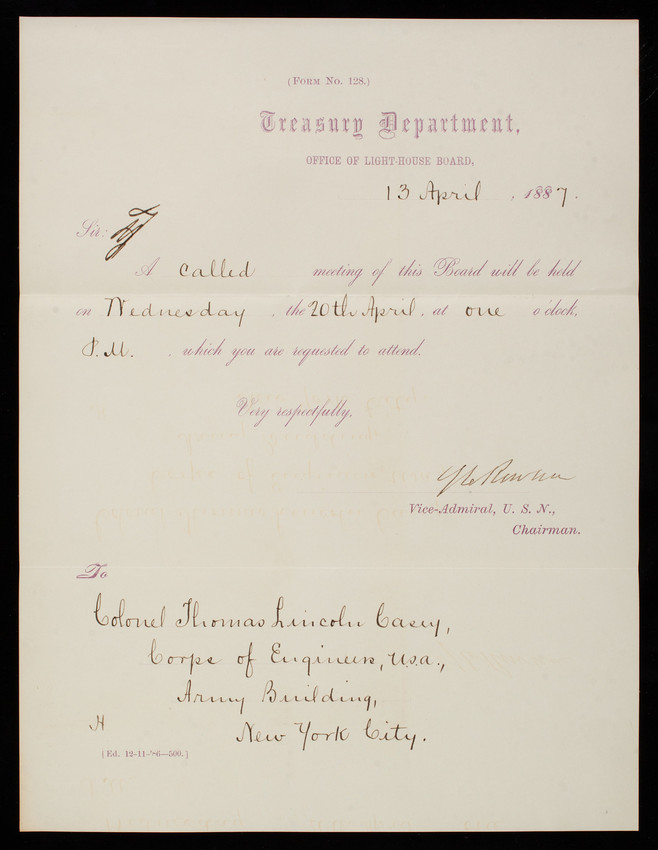 (FORM NO. 128.)
Treasury Department,
OFFICE OF LIGHT-HOUSE BOARD,
13 April, 1887.
Sir:
A called meeting of this Board will be held
on Wednesday, the 20th April, at one o'clock,
P.M., which you are requested to attend.
Very respectfully,
Rowan
Vice-Admiral, U. S. N.,
Chairman.
To
Colonel Thomas Lincoln Casey,
Corps of Engineers, U.S.A.,
Army Building,
New York City.
H
[Ed. 12-11-'86—500.]